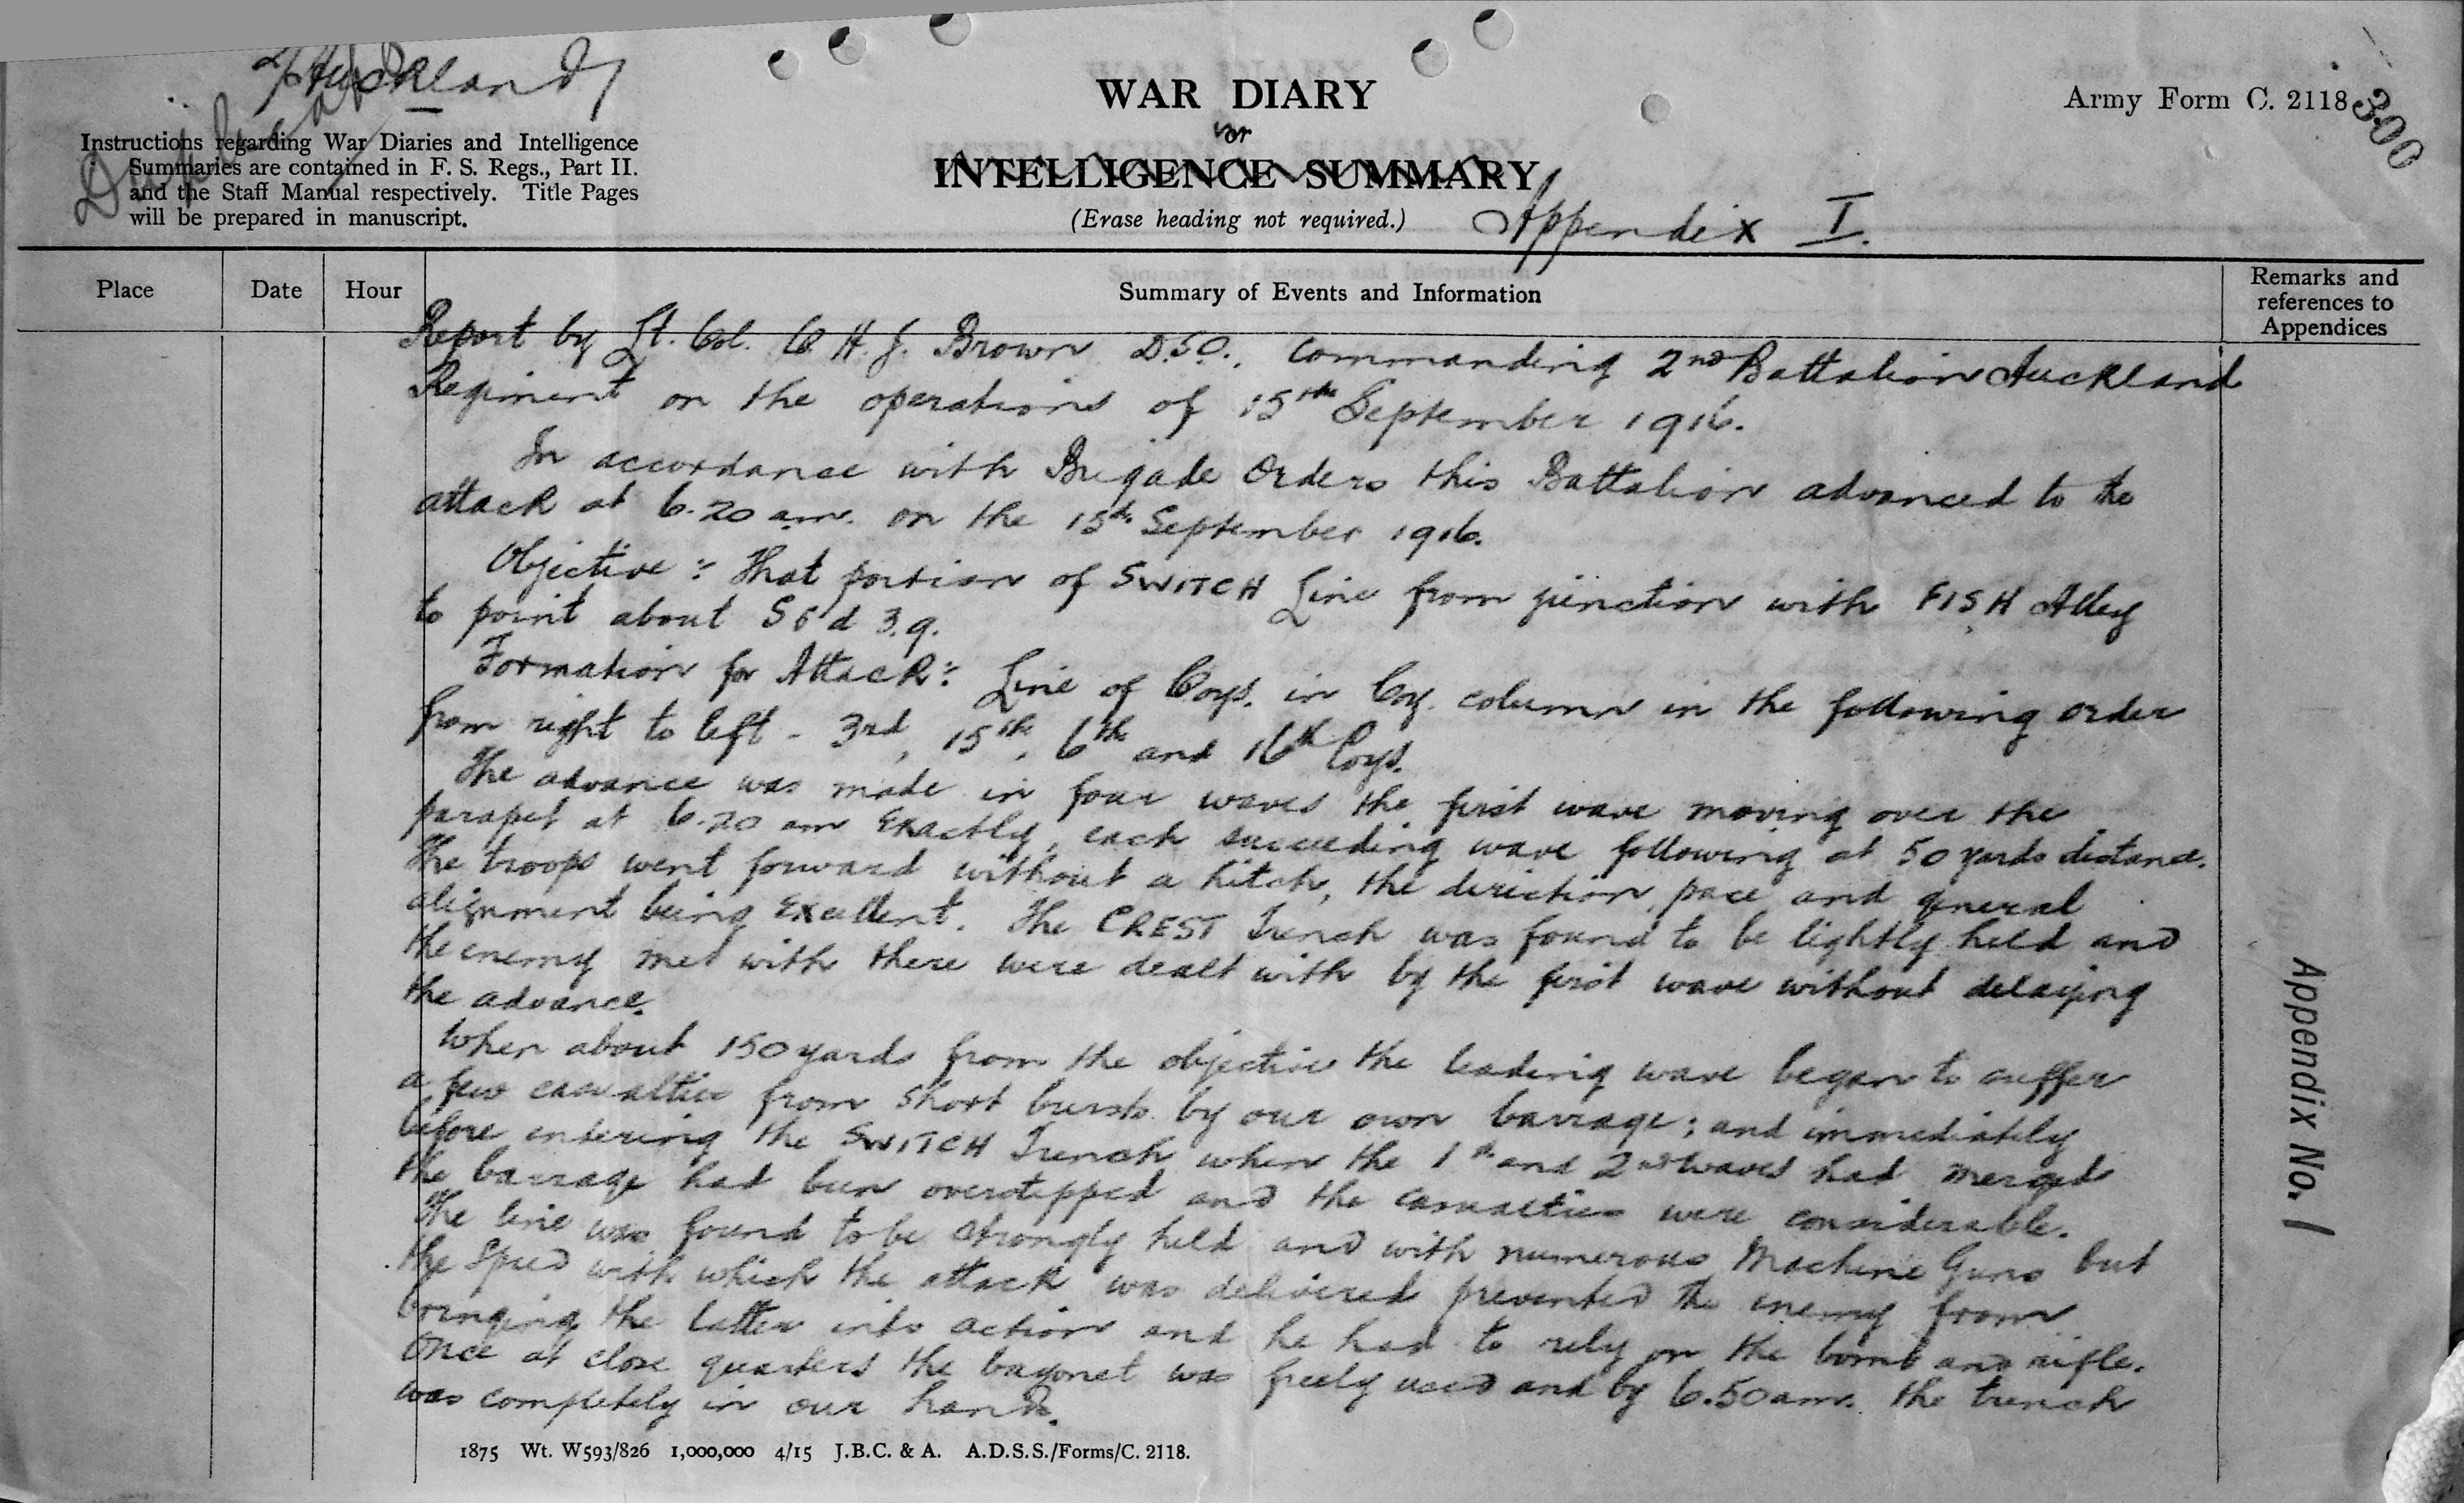 2/Auckland
Duplicate
WAR DIARY
or
INTELLIGENCE SUMMARY
(Erase heading not required.)
Army Form C. 2118
300
Instructions regarding War Diaries and Intelligence
Summaries are contained in F. S. Regs., Part II.
and the Staff Manual respectively. Title Pages
will be prepared in manuscript.
Appendix I.
Place
Date
Hour
Summary of Events and Information
Remarks and
references to
Appendices
Report by Lt. Col. C. H. J. Brown D.S.O., Commanding 2nd Battalion Auckland
Regiment on the operations of 15th September 1916.
In accordance with Brigade Orders this Battalion advanced to the
attack at 6.20 am. on the 15th September 1916.
Objective :- That portion of SWITCH Line from junction with FISH Alley
to point about S 6 d 3.9.
Formation for Attack :- Line of Coys. in Coy. column in the following order
from right to left - 3rd, 15th, 6th and 16th Coys.
The advance was made in four waves the first wave moving over the
parapet at 6.20 am Exactly, each succeeding wave following at 50 yards distance.
The troops went forward without a hitch, the direction, pace and general
alignment being Excellent. The CREST Trench was found to be lightly held and
the enemy met with there were dealt with by the first wave without delaying
the advance.
When about 150 yards from the objective the leading wave began to suffer
a few casualties from short bursts by our own barrage; and immediately
before entering the SWITCH Trench when the 1st and 2nd waves had merged
the barrage had been overstepped and the casualties were considerable.
The line was found to be strongly held and with numerous Machine Guns but
the speed with which the attack was delivered prevented the enemy from
bringing the latter into action and he had to rely on the bomb and rifle.
Once at close quarters the bayonet was freely used and by 6.50 am. the trench
was completely in our hands.
Appendix No. 1
1875 Wt. W593/826 1,000,000 4/15 J.B.C. & A. A.D.S.S./Forms/C. 2118.